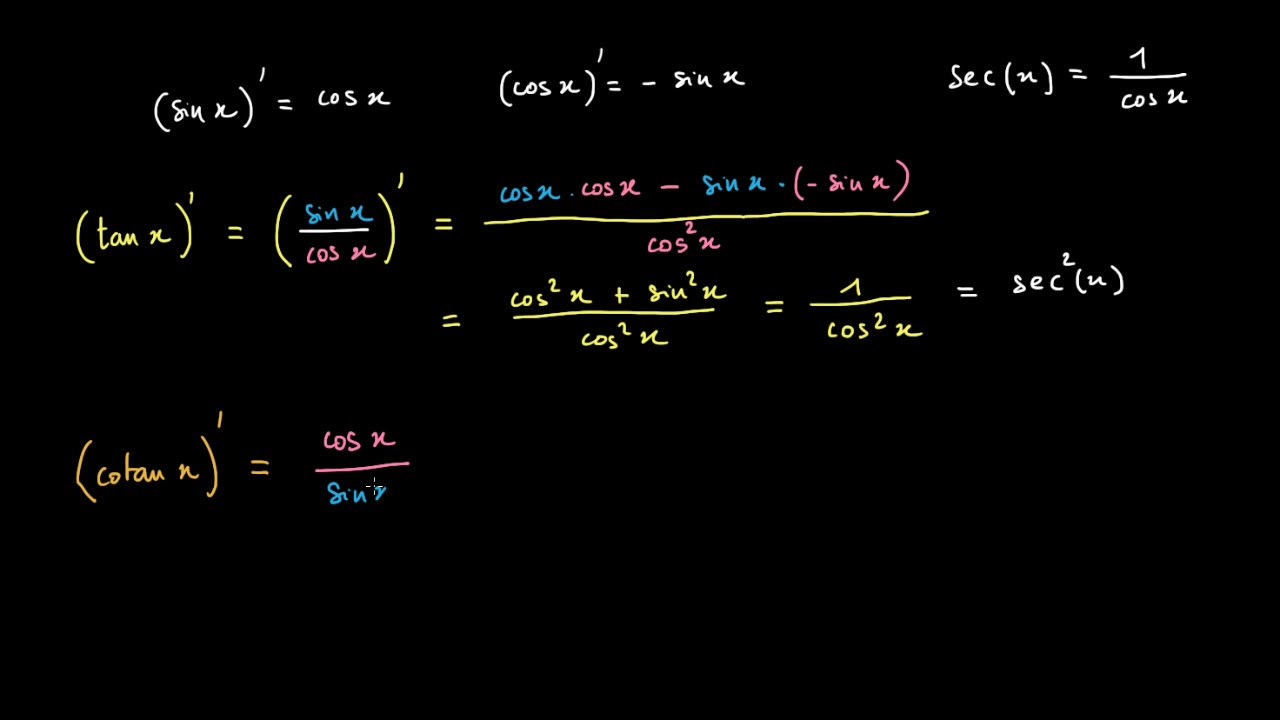 (sin x)' = cos x (cos x)' = - sin x sec(x) = 1/cos x
(tan x)' = (sin x/cos x)' = (cos x . cos x - sin x . (- sin x))/cos² x
= (cos² x + sin² x)/cos² x = 1/cos² x = sec²(x)
(cotan x)' = cos x/sin x